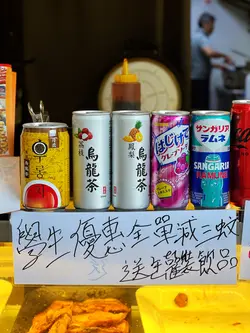 荔枝
烏龍茶
鳳梨
烏龍茶
はじけて
グレープ
サンガリア
ラムネ
SANGARIA
RAMUNE
學生優惠全單減三蚊
送生罐裝飲品